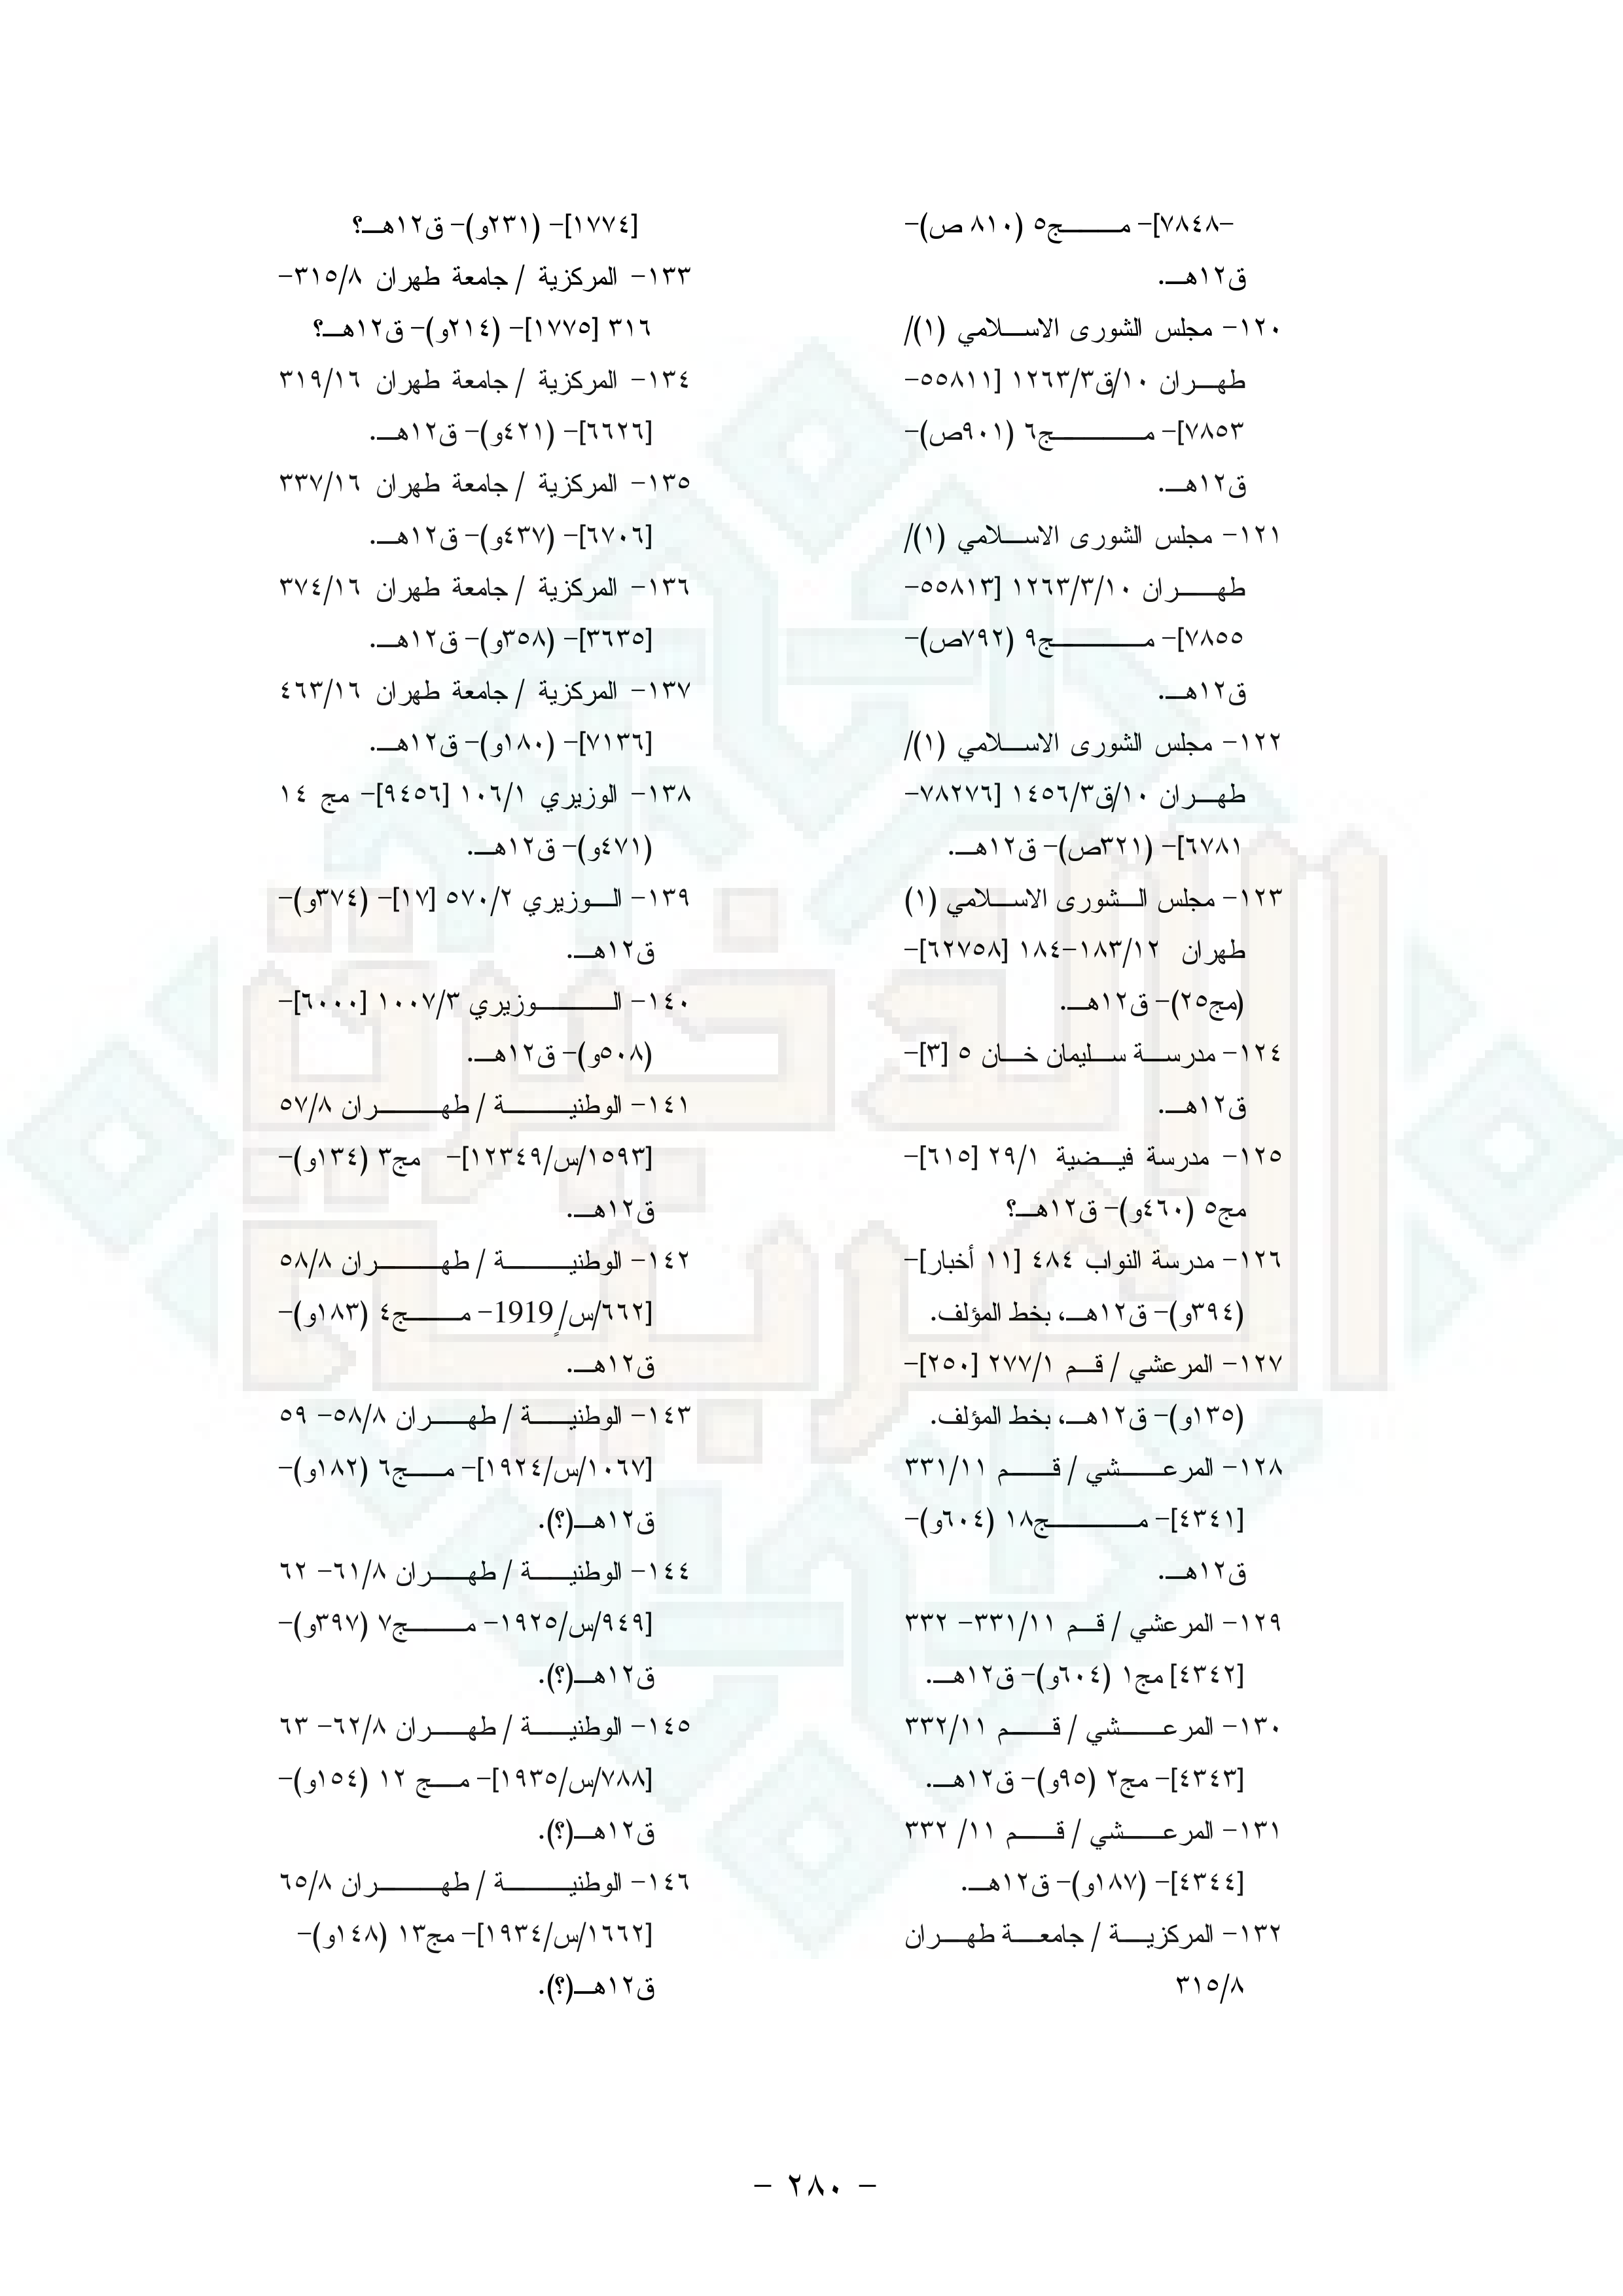 -٧٨٤٨]- مج٥ (٨١٠ ص)-
ق١٢هـ.
١٢٠- مجلس الشورى الاسلامي (١)/
طهران ١٠/ق١٢٦٣/٣ [٥٥٨١١-
٧٨٥٣]- مج٦ (٩٠١ص)-
ق١٢هـ.
١٢١- مجلس الشورى الاسلامي (١)/
طهران ١٢٦٣/٣/١٠ [٥٥٨١٣-
٧٨٥٥]- مج٩ (٧٩٢ص)-
ق١٢هـ.
١٢٢- مجلس الشورى الاسلامي (١)/
طهران ١٠/ق١٤٥٦/٣ [٧٨٢٧٦-
٦٧٨١]- (٣٢١ص)- ق١٢هـ.
١٢٣- مجلس الشورى الاسلامي (١)
طهران ١٨٣/١٢-١٨٤ [٦٢٧٥٨]-
(مج٢٥)- ق١٢هـ.
١٢٤- مدرسة سليمان خان ٥ [٣]-
ق١٢هـ.
١٢٥- مدرسة فيضية ٢٩/١ [٦١٥]-
مج٥ (٤٦٠و)- ق١٢هـ؟
١٢٦- مدرسة النواب ٤٨٤ [١١ أخبار]-
(٣٩٤و)- ق١٢هـ، بخط المؤلف.
١٢٧- المرعشي / قم ٢٧٧/١ [٢٥٠]-
(١٣٥و)- ق١٢هـ، بخط المؤلف.
١٢٨- المرعشي / قم ٣٣١/١١
[٤٣٤١]- مج١٨ (٦٠٤و)-
ق١٢هـ.
١٢٩- المرعشي / قم ٣٣١/١١- ٣٣٢
[٤٣٤٢] مج١ (٦٠٤و)- ق١٢هـ.
١٣٠- المرعشي / قم ٣٣٢/١١
[٤٣٤٣]- مج٢ (٩٥و)- ق١٢هـ.
١٣١- المرعشي / قم ١١/ ٣٣٢
[٤٣٤٤]- (١٨٧و)- ق١٢هـ.
١٣٢- المركزية / جامعة طهران
٣١٥/٨
[١٧٧٤]- (٢٣١و)- ق١٢هـ؟
١٣٣- المركزية / جامعة طهران ٣١٥/٨-
٣١٦ [١٧٧٥]- (٢١٤و)- ق١٢هـ؟
١٣٤- المركزية / جامعة طهران ٣١٩/١٦
[٦٦٢٦]- (٤٢١و)- ق١٢هـ.
١٣٥- المركزية / جامعة طهران ٣٣٧/١٦
[٦٧٠٦]- (٤٣٧و)- ق١٢هـ.
١٣٦- المركزية / جامعة طهران ٣٧٤/١٦
[٣٦٣٥]- (٣٥٨و)- ق١٢هـ.
١٣٧- المركزية / جامعة طهران ٤٦٣/١٦
[٧١٣٦]- (١٨٠و)- ق١٢هـ.
١٣٨- الوزيري ١٠٦/١ [٩٤٥٦]- مج ١٤
(٤٧١و)- ق١٢هـ.
١٣٩- الوزيري ٥٧٠/٢ [١٧]- (٣٧٤و)-
ق١٢هـ.
١٤٠- الوزيري ١٠٠٧/٣ [٦٠٠٠]-
(٥٠٨و)- ق١٢هـ.
١٤١- الوطنية / طهران ٥٧/٨
[١٥٩٣/س/١٢٣٤٩]- مج٣ (١٣٤و)-
ق١٢هـ.
١٤٢- الوطنية / طهران ٥٨/٨
[٦٦٢/س/1919ٍ- مج٤ (١٨٣و)-
ق١٢هـ.
١٤٣- الوطنية / طهران ٥٨/٨- ٥٩
[١٠٦٧/س/١٩٢٤]- مج٦ (١٨٢و)-
ق١٢هـ(؟).
١٤٤- الوطنية / طهران ٦١/٨- ٦٢
[٩٤٩/س/١٩٢٥- مج٧ (٣٩٧و)-
ق١٢هـ(؟).
١٤٥- الوطنية / طهران ٦٢/٨- ٦٣
[٧٨٨/س/١٩٣٥]- مج ١٢ (١٥٤و)-
ق١٢هـ(؟).
١٤٦- الوطنية / طهران ٦٥/٨
[١٦٦٢/س/١٩٣٤]- مج١٣ (١٤٨و)-
ق١٢هـ(؟).
- ٢٨٠ -